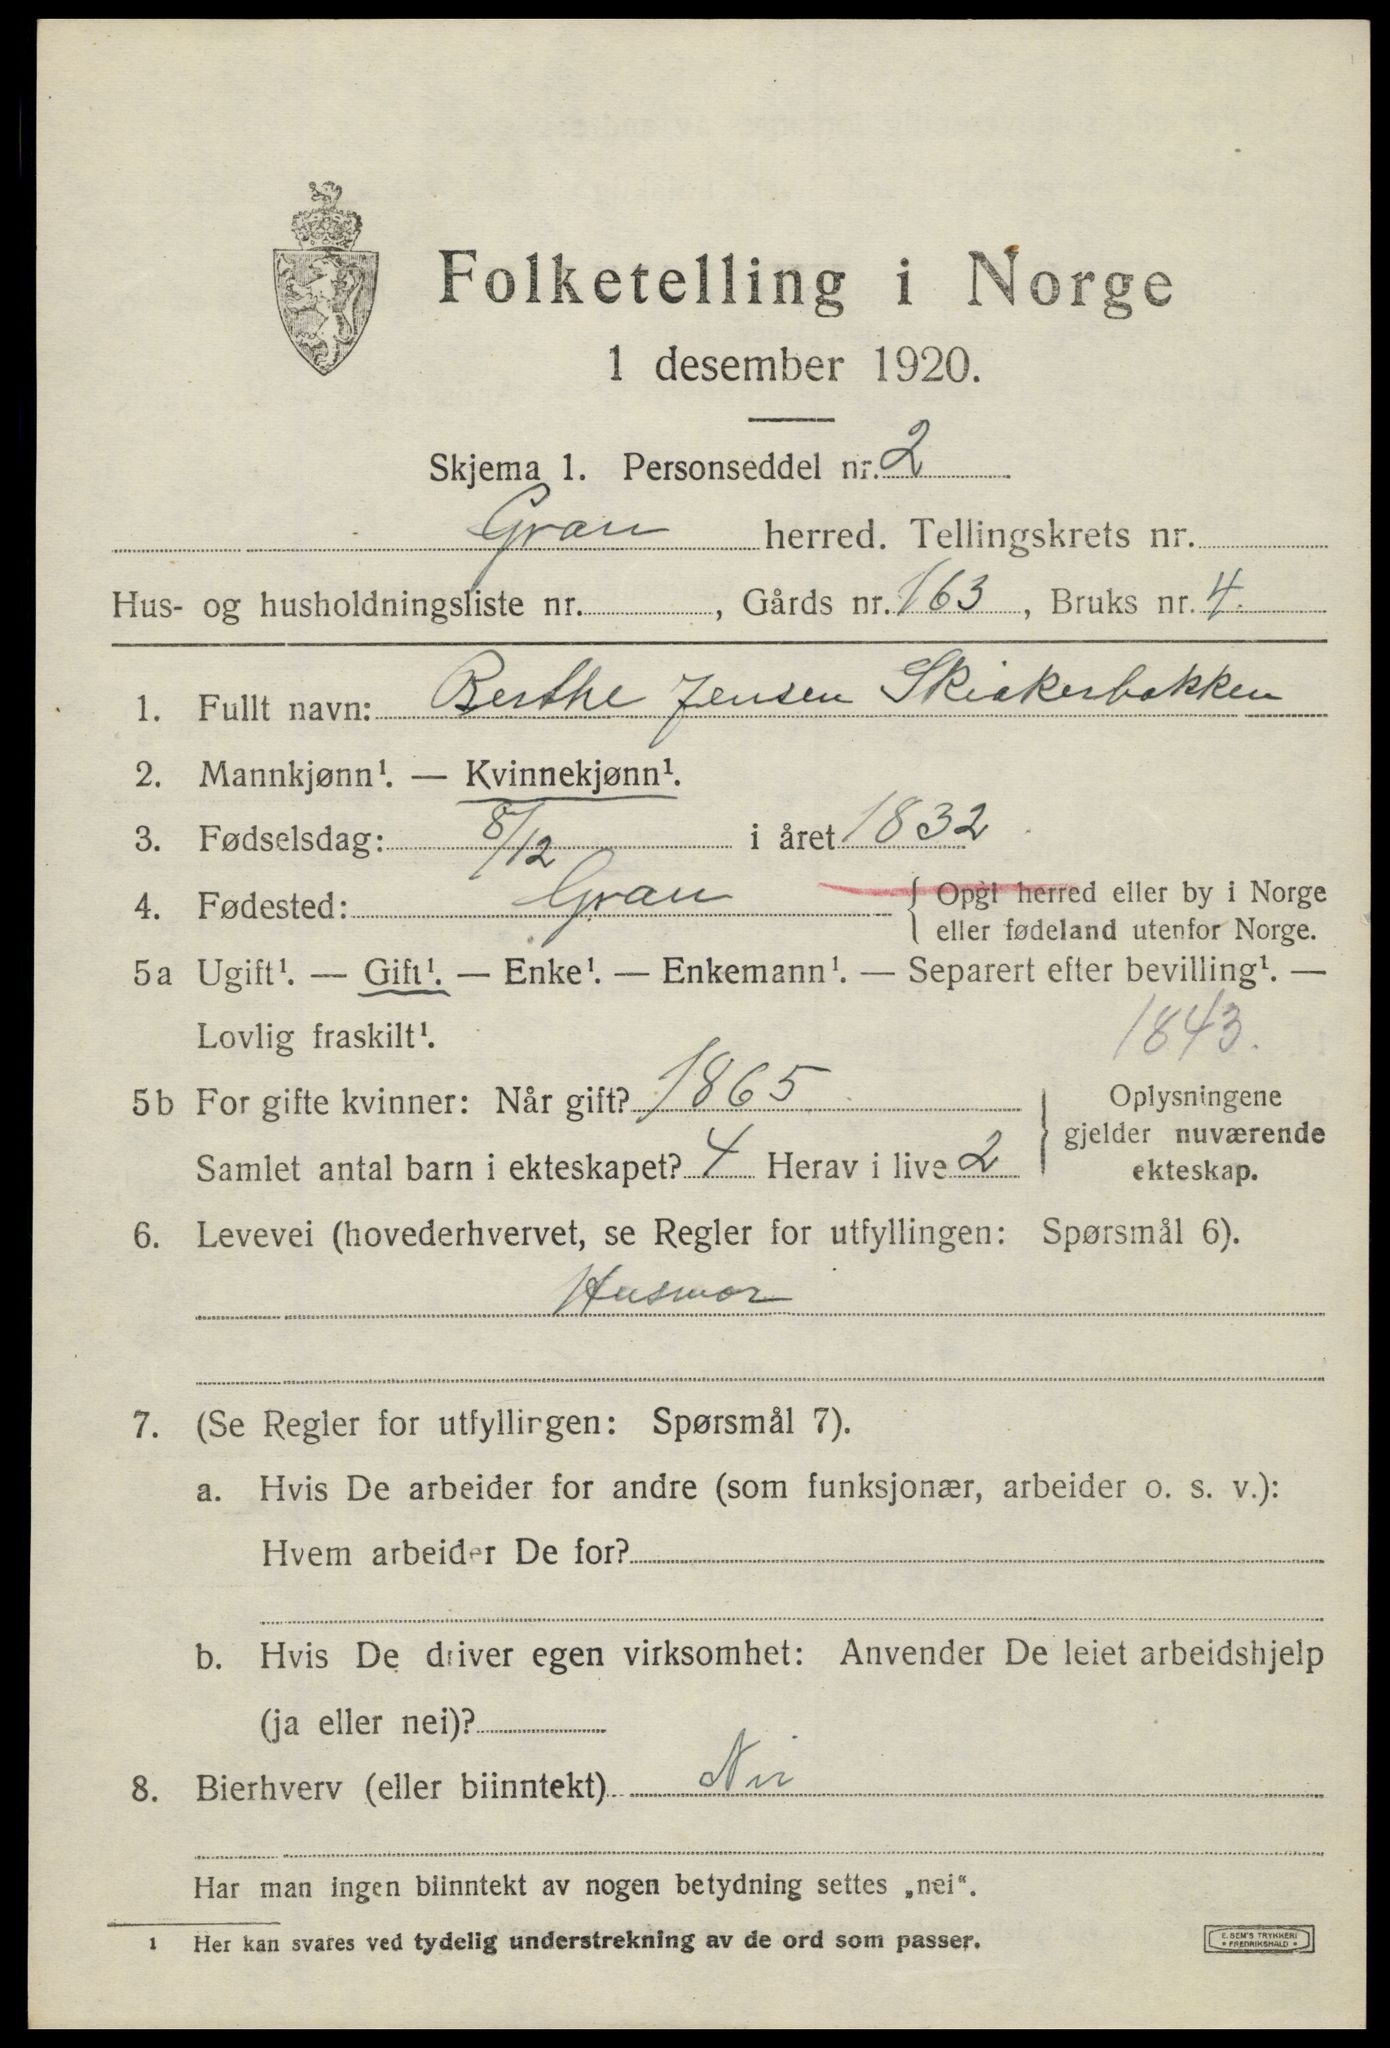 Folketelling i Norge
1 desember 1920.
Skjema 1. Personseddel nr. 2
Gran herred. Tellingskrets nr.
Hus- og husholdningsliste nr. , Gårds nr. 163 , Bruks nr. 4.
1. Fullt navn: Berthe Jensen Skiakerbakken
2. Mannkjønn¹. — Kvinnekjønn¹.
3. Fødselsdag: 8/12 i året 1832
4. Fødested: Gran { Opgi herred eller by i Norge
eller fødeland utenfor Norge.
5a Ugift¹. — Gift¹. — Enke¹. — Enkemann¹. — Separert efter bevilling¹. —
Lovlig fraskilt¹. 1843.
5b For gifte kvinner: Når gift? 1865
Samlet antal barn i ekteskapet? 4 Herav i live 2
} Oplysningene
gjelder nuværende
ekteskap.
6. Levevei (hovederhvervet, se Regler for utfyllingen: Spørsmål 6).
Husmor
7. (Se Regler for utfyllingen: Spørsmål 7).
a. Hvis De arbeider for andre (som funksjonær, arbeider o. s. v.):
Hvem arbeider De for?
b. Hvis De driver egen virksomhet: Anvender De leiet arbeidshjelp
(ja eller nei)?
8. Bierhverv (eller biinntekt) Nei
Har man ingen biinntekt av nogen betydning settes „nei“.
1 Her kan svares ved tydelig understrekning av de ord som passer.
E. SEM'S TRYKKERI
• FREDRIKSHALD •